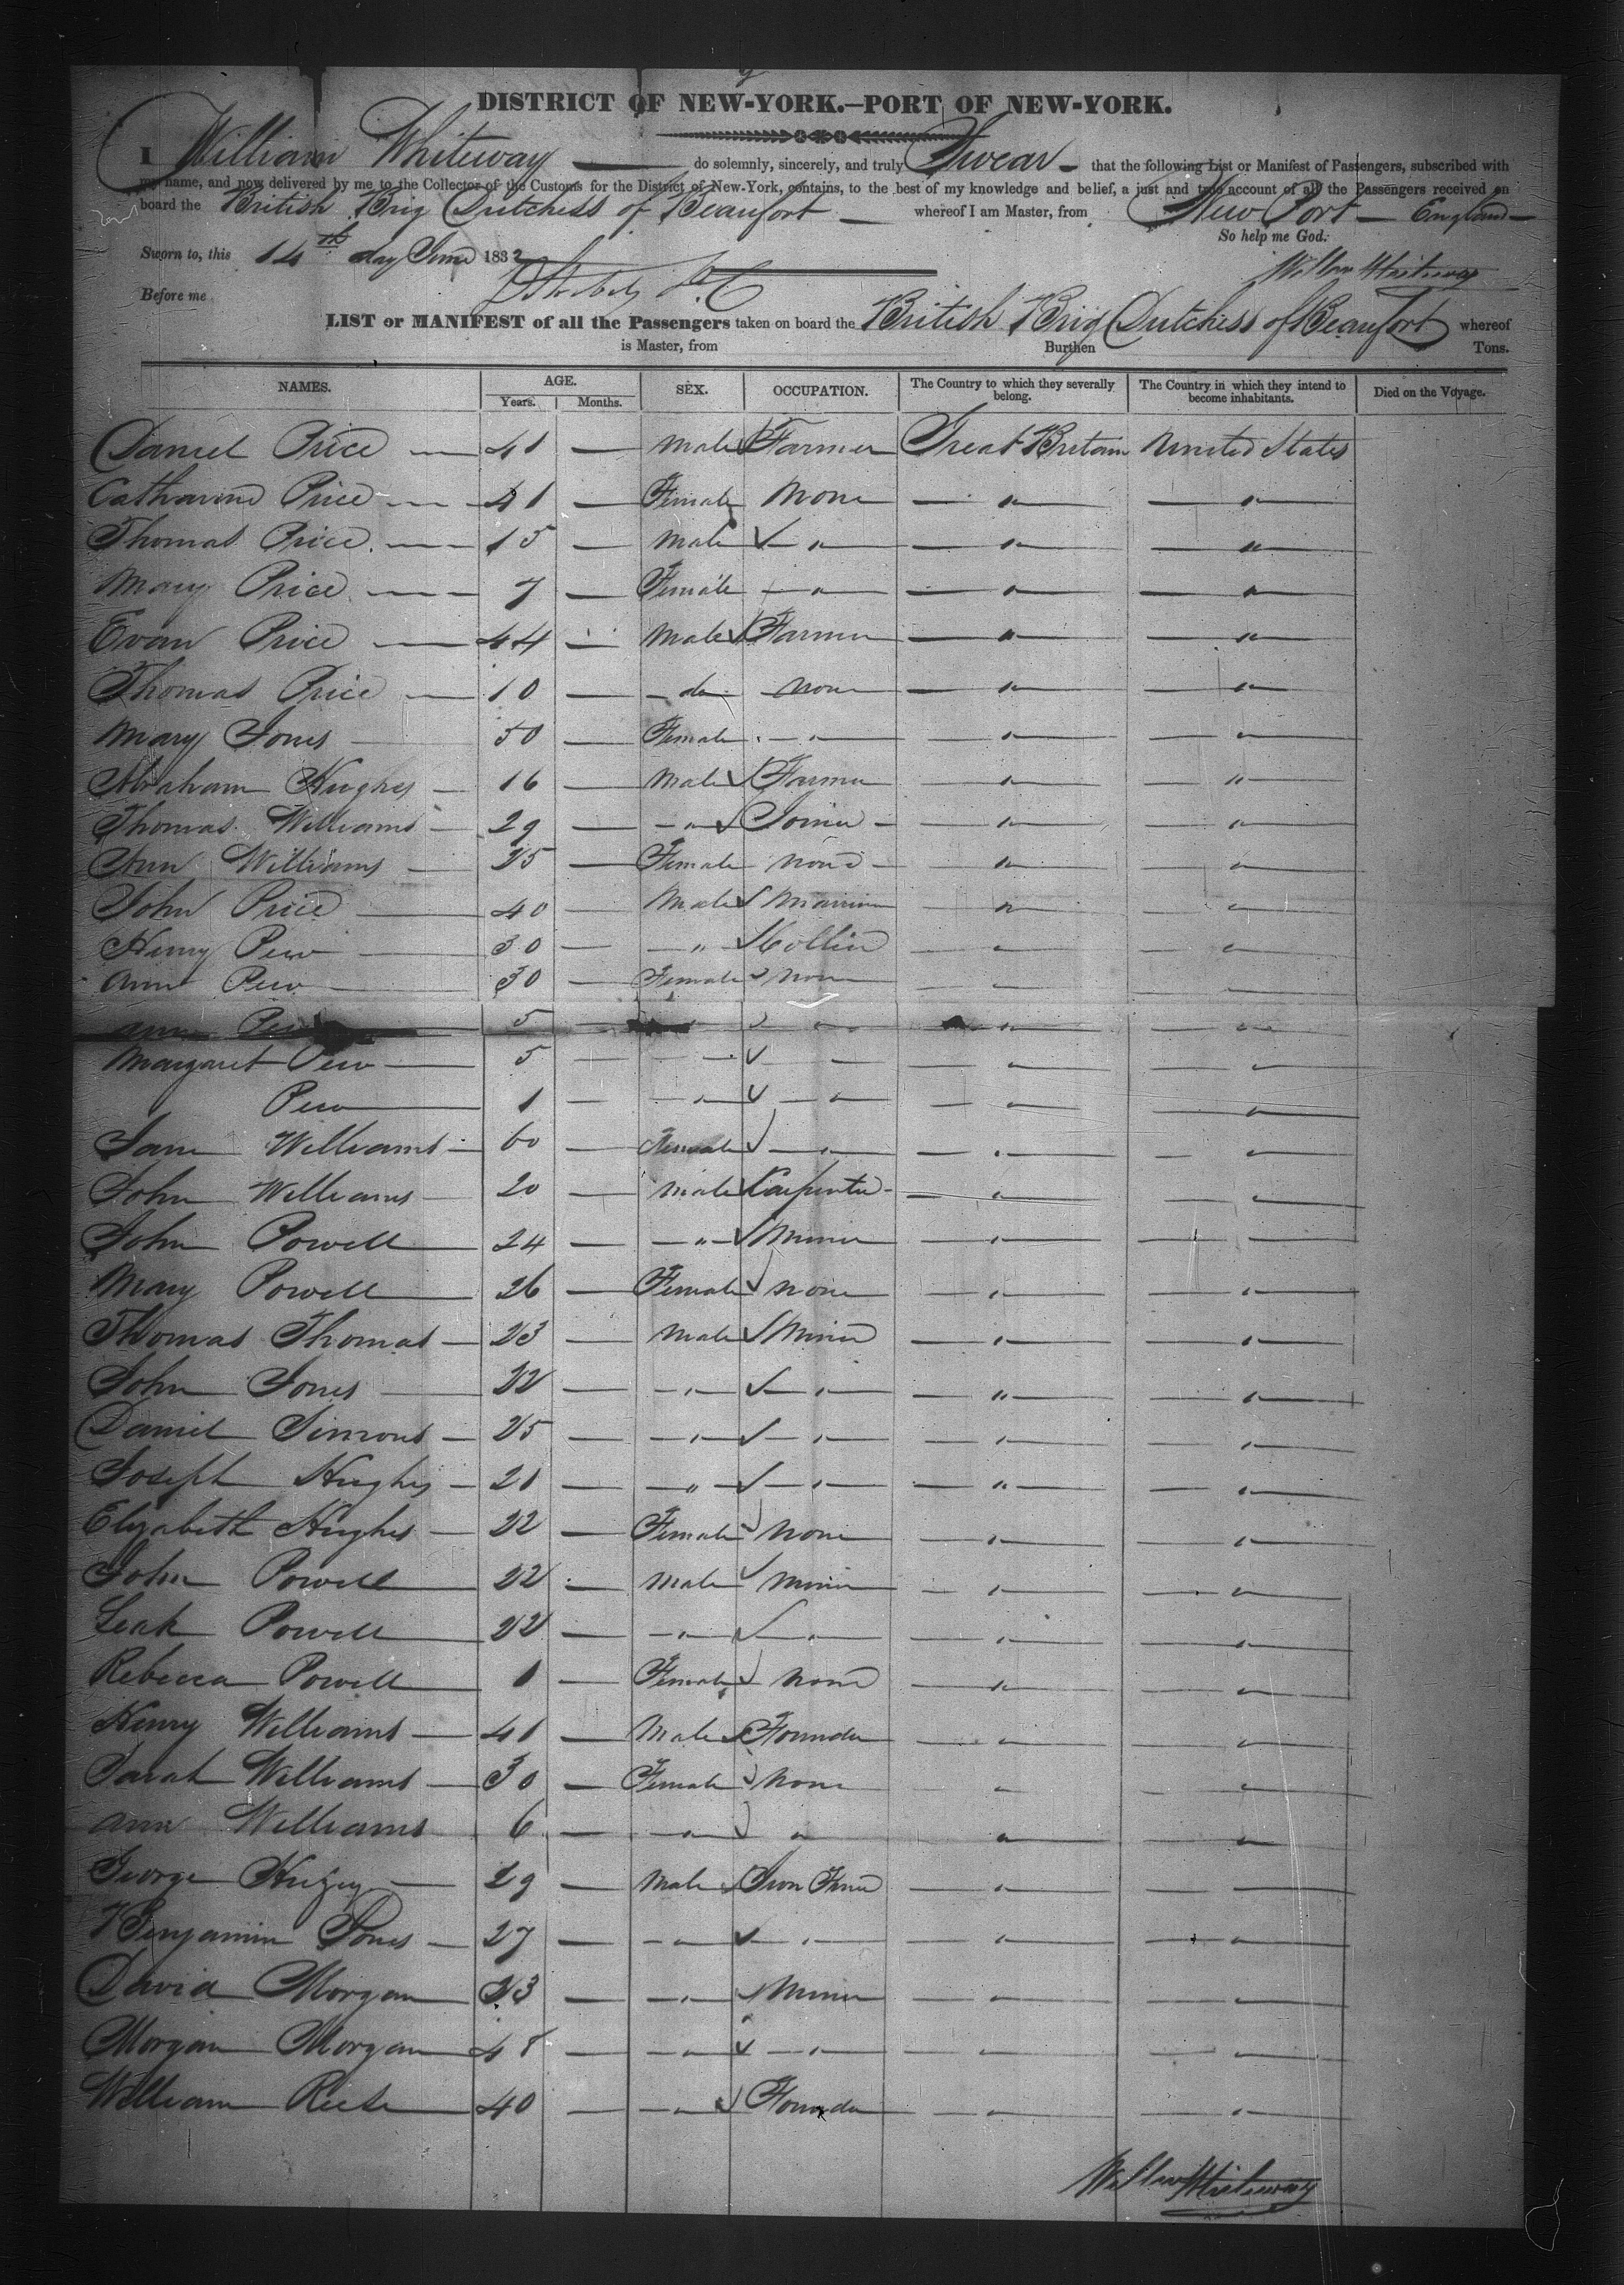 DISTRICT OF NEW-YORK.—PORT OF NEW-YORK.
I William Whiteway — do solemnly, sincerely, and truly Swear — that the following List or Manifest of Passengers, subscribed with
my name, and now delivered by me to the Collector of the Customs for the District of New-York, contains, to the best of my knowledge and belief, a just and true account of all the Passengers received on
board the British Brig Dutchess of Beaufort — whereof I am Master, from New Port — England —
So help me God.
Sworn to, this 14th day June 1832
Willm Whiteway
Before me
LIST or MANIFEST of all the Passengers taken on board the British Brig Dutchess of Beaufort whereof
is Master, from Burthen Tons.
NAMES. AGE. Years. Months. SEX. OCCUPATION. The Country to which they severally belong. The Country in which they intend to become inhabitants. Died on the Voyage.
Daniel Price — 41 — Male Farmer Great Britain United States
Catharine Price — 41 — Female None — " — — " —
Thomas Price — 15 — Male — " — " — — " —
Mary Price — 7 — Female — " — — " — — " —
Evan Price — 44 — Male Farmer — " — — " —
Thomas Price — 10 — do None — " — — " —
Mary Jones — 50 — Female — " — — " — — " —
Abraham Hughes — 16 — Male Farmer — " — — " —
Thomas Williams — 29 — " Joiner — — " — — " —
Ann Williams — 25 — Female None — — " — — " —
John Price — 40 — Male — " — — " —
Henry Pew — 30 — " — Collier — " — — " —
Ann Pew — 30 — Female None — " — — " —
Ann Pew — 5 — " — " — — " — — " —
Margaret Pew — 5 — " — — " — — " — — " —
Pew — 1 — " — — " — — " — — " —
Jane Williams — 60 — Female — " — — " — — " —
John Williams — 20 — Male Carpenter — — " — — " —
John Powell — 24 — " — Miner — " — — " —
Mary Powell — 26 — Female None — " — — " —
Thomas Thomas — 23 — Male Miner — " — — " —
John Jones — 22 — " — — " — — " — — " —
Daniel Simons — 25 — " — — " — — " — — " —
Joseph Hughes — 21 — " — — " — — " — — " —
Elizabeth Hughes — 22 — Female None — " — — " —
John Powell — 22 — Male Miner — " — — " —
Leah Powell — 22 — " — — " — — " — — " —
Rebecca Powell — 1 — Female None — " — — " —
Henry Williams — 41 — Male Founder — " — — " —
Sarah Williams — 30 — Female None — " — — " —
Ann Williams 6 — " — " — " — — " —
George — 29 — Male Iron — " — — " —
Benjamin Jones — 27 — " — — " — — " — — " —
David Morgan — 23 — " — Miner — " — — " —
Morgan Morgan — 48 — " — — " — — " — — " —
William Reese 40 — " — Founder — " — — " —
Willm Whiteway